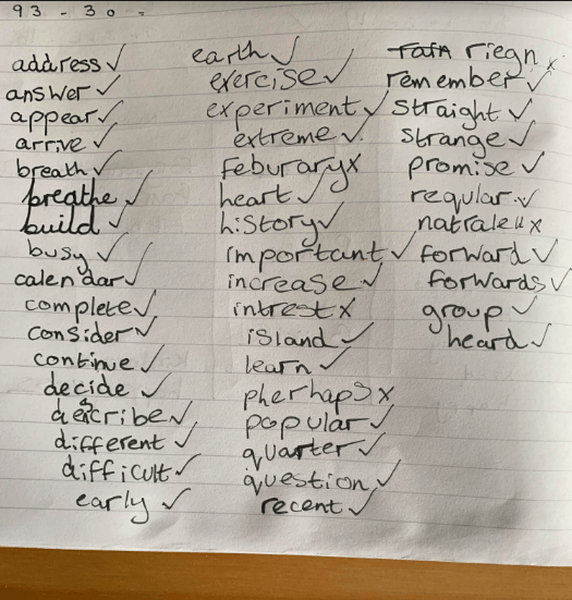 93 - 30 -
address ✓
answer ✓
appear ✓
arrive ✓
breath ✓
breathe ✓
build ✓
busy ✓
calendar ✓
complete ✓
consider ✓
continue ✓
decide ✓
describe ✓
different ✓
difficult ✓
early ✓
earth ✓
exercise ✓
experiment ✓
extreme ✓
Feburary x
heart ✓
history ✓
important ✓
increase ✓
intrest x
island ✓
learn ✓
pherhaps x
popular ✓
quarter ✓
question ✓
recent ✓
riegn x
remember ✓
straight ✓
strange ✓
promise ✓
regular ✓
x
forward ✓
forwards ✓
group ✓
heard ✓